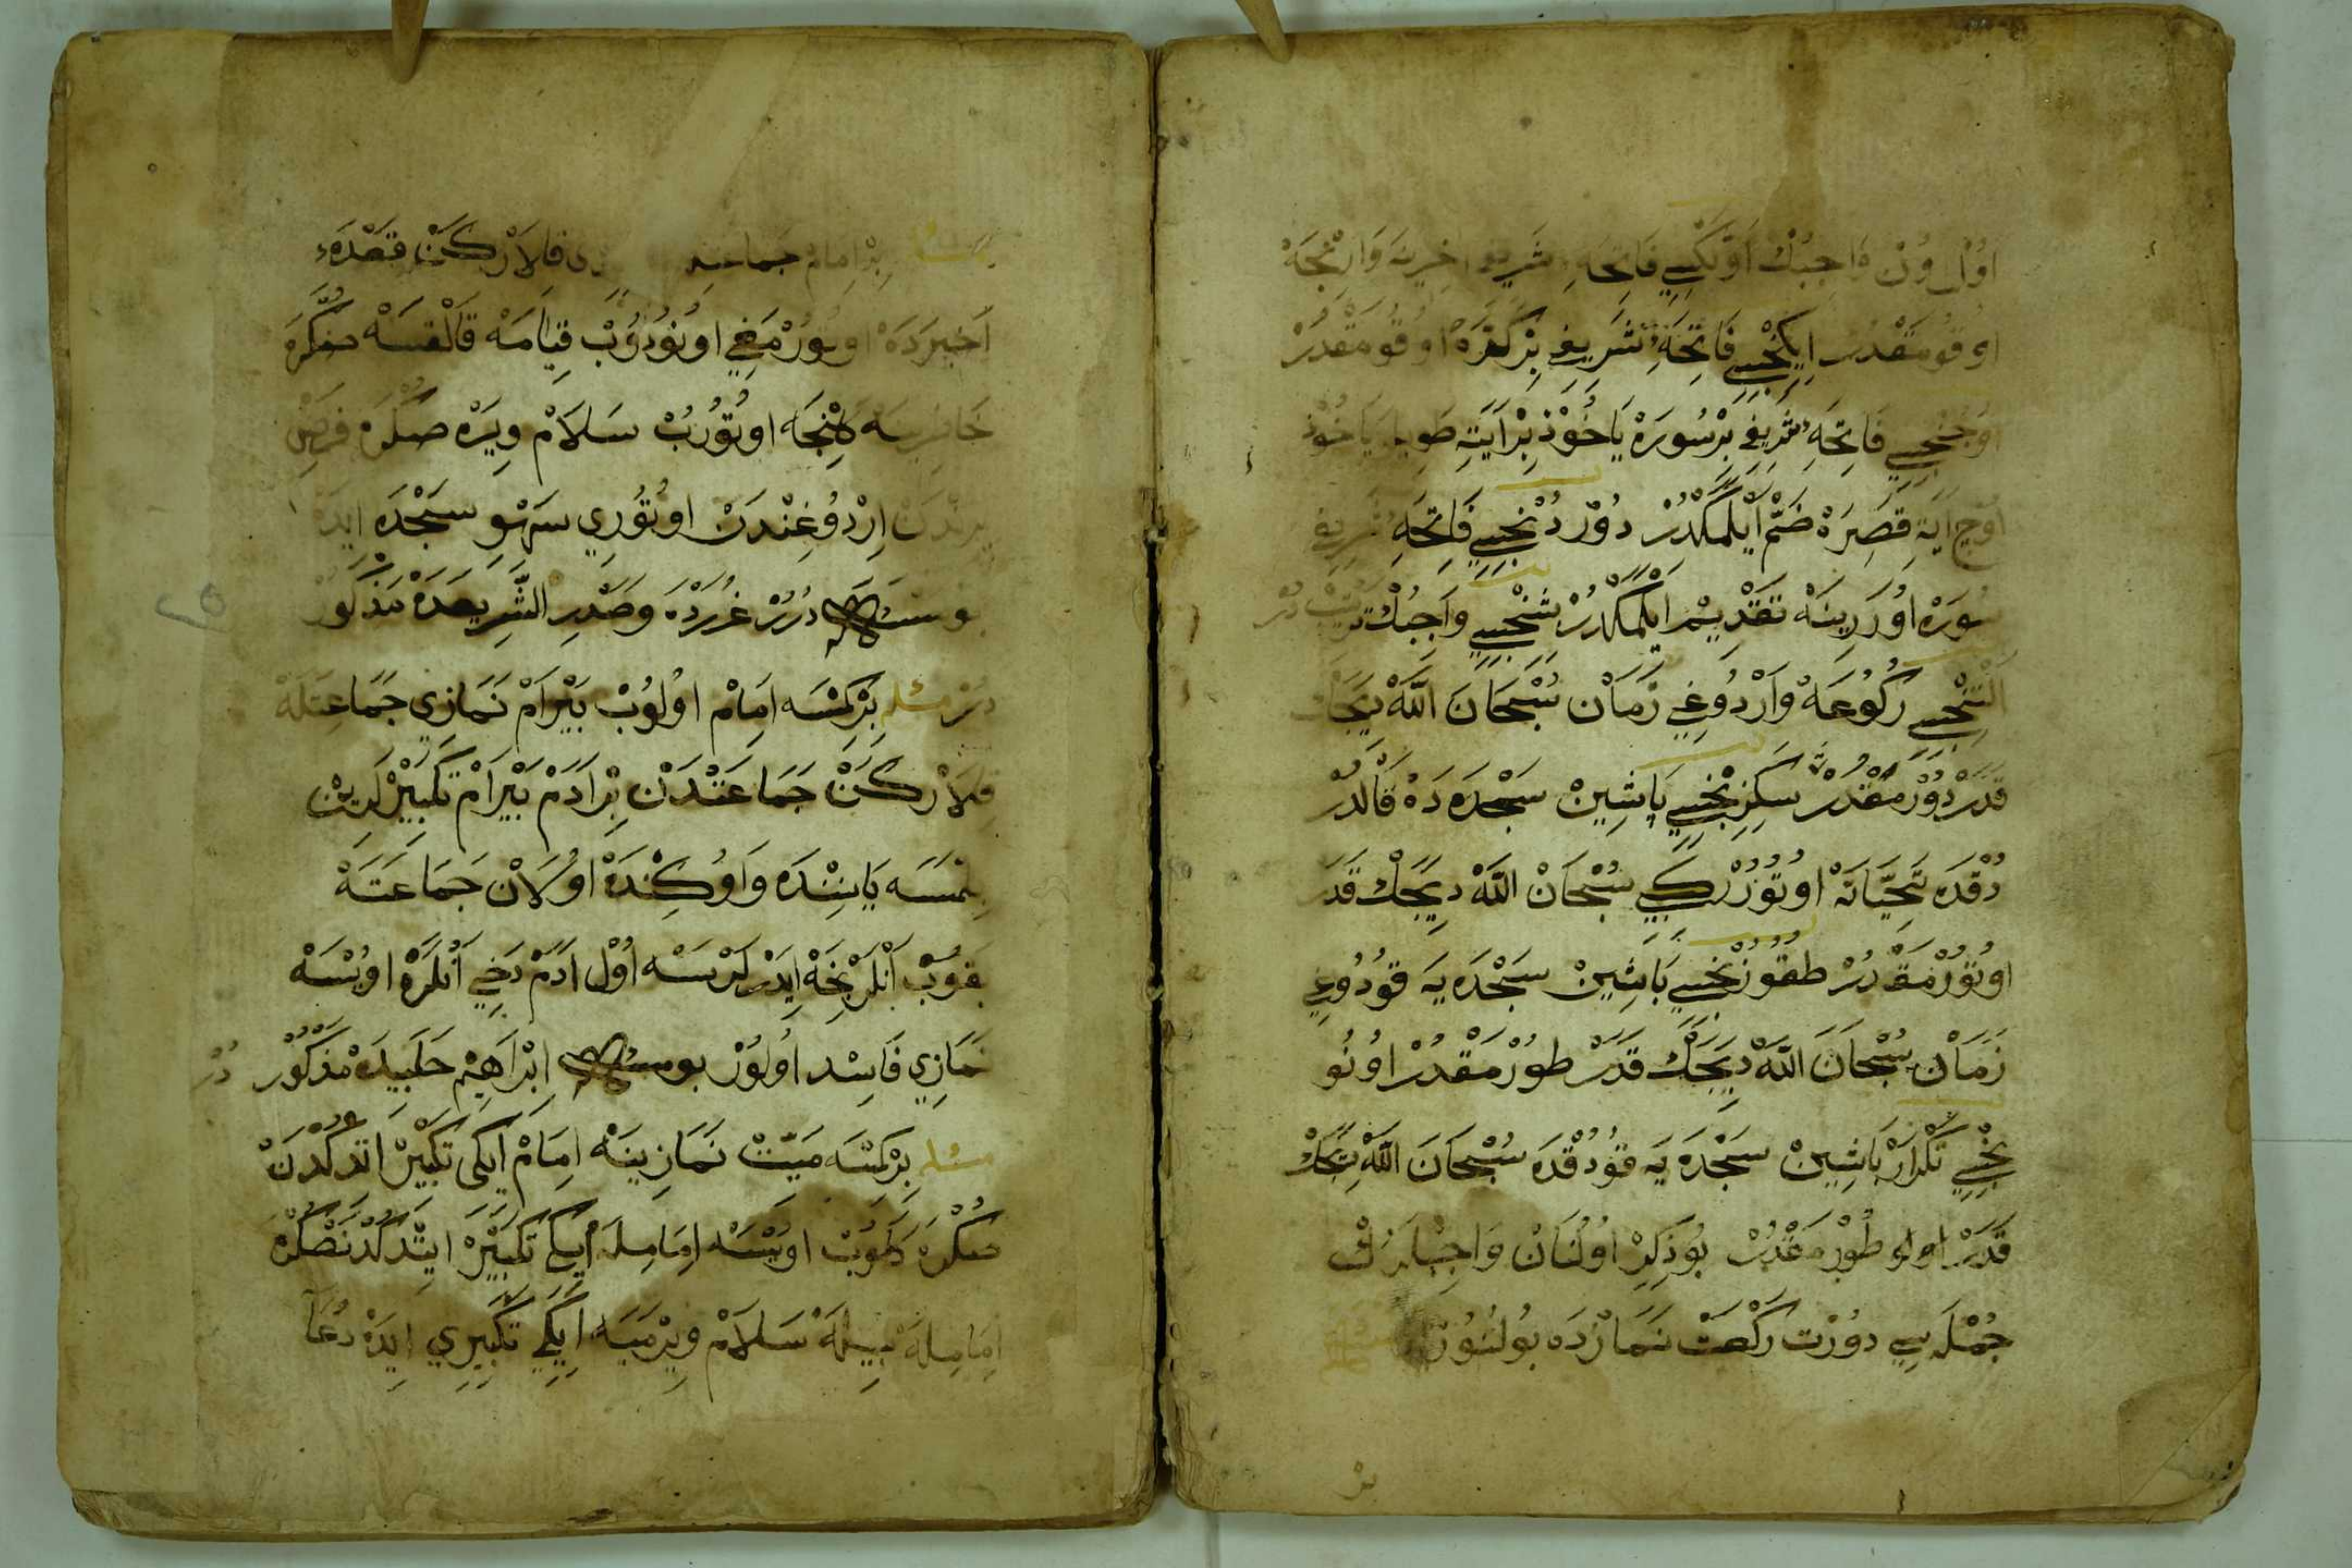 اوُل وُنْ وَاجِبُكْ اَوَّلْكِسِي فَاتِحَهِٔ شَرِيفِ اٰخِرِينَه وَارِنْجَهْ
اوُقوُمَقْدُرْ اِيكِنْجِيسِي فَاتِحَهِٔ شَرِيفِ بِرْ كَرَّهْ اوُقوُمَقْدُرْ
اوُچُنْجِيسِي فَاتِحَهِٔ شَرِيفِ بِرْسُورَهْ يَاخُوْذْ بِرْاٰيَتِ طَوِيلَه يَاخُوْذ
اوُچ اٰيَةِ قَصِيرَهْ ضَمّ اَيْلَمَكْدُرْ دوُرْدُنْجِيسِي فَاتِحَهِٔ شَرِيفِ
سُورَهْ اوُزَرِينَهْ تَقْدِيمْ اَيْلَمَكْدُرْ بَشِنْجِيسِي وَاجِبُكْ تَرْتِيبْ دُرْ
اَلْتِنْجِيسِي رُكُوعَهْ وَارْدُوغِي زَمَانْ سُبْحَانَ اللّٰهْ دِيَجَكْ
قَدَرْ دوُرْمَقْدُرْ سَكِزِنْجِيسِي بَاشِينْ سَجْدَهدَهْ قَالْدُرْ
دُقْدَه تَحِيَّاتَهْ اوُتوُرُرْكِبِي سُبْحَانْ اللّٰهْ دِيَجَكْ قَدَرْ
اوُتوُرْمَقْدُرْ طقوُزُنْجِيسِي بَاشِينْ سَجْدَهيَه قوُدُوغِي
زَمَانْ سُبْحَانَ اللّٰهْ دِيَجَكْ قَدَرْ طوُرْمَقْدُرْ اوُنُو
نْجِيسِي تَكْرَارْ بَاشِينْ سَجْدَهيَه قوُدُقْدَه سُبْحَانَ اللّٰهْ دِيَجَكْ
قَدَرْ طوُرْمَقْدُرْ بوُ ذِكِرْ اوُلُنَانْ وَاجِبْلَرُكْ
جُمْلَهسِي دوُرْت رَكْعَتْ نَمَازْدَه بوُلنوُرْ
بِرْ
بِرْ اِمَامْ جَمَاعَتِه قِلَارْكَنْ قَعْدَهءِ
اَخِيرَدَهْ اوُتوُرْمَغِي اوُنوُدوُبْ قِيَامَهْ قَالْقسَهْ صكْرَه
خَاطِرِنَه كَلِنْجَه اوُتوُرُبْ سَلَامْ وِيرَهْ صكْرَه فَرْضِ
يِرِنْدَنْ اِرْدُوغِنْدَنْ اوُتوُرِي سَهْوِ سَجْدَه اِيدَهْ
بو مسئله دُرَرْ غُرَرْدَهْ وصَدْرِ الشَّرِيعَهدَهْ مَذْكُورْ
دُرْ مسئله بِرْكِمْسَه اِمَامْ اوُلوُبْ بَيْرَامْ نَمَازِي جَمَاعَتَلَهْ
قِلَارْكَنْ جَمَاعَتْدَنْ بِرْ اَدَمْ بَيْرَامْ تَكْبِيرْلَرِينْ
بِلْمَسَه يَانِنْدَه وَاوُكِنْدَهْ اوُلَانْ جَمَاعَتَهْ
بَقوُبْ اَنْلَرْنِجَهْ اِيدَرْلَرْسَه اوُلْ اَدَمْ دَخِي اَنْلَرَهْ اوُيْسَهْ
نَمَازِي فَاسِد اوُلوُرْ بو مسئله اِبْرَاهِيمْ حَلَبِيدَهْ مَذْكُورْ دُرْ
مسئله بِرْكِمْسَه مَيِّتْ نَمَازِينَهْ اِمَامْ اِيكِي تَكْبِيرْ اِتْدُكْدَنْ
صكْرَه كَلوُبْ اوُيْسَهْ اِمَامِلَهْ اِيكِي تَكْبِيرْ اِيتْدُكْدَنْصُكْرَهْ
اِمَامِلَهْ بِيلَهْ سَلَامْ وِيرْمَيَه اِيكِي تَكْبِيرِي اِيدَهْ دُعَا